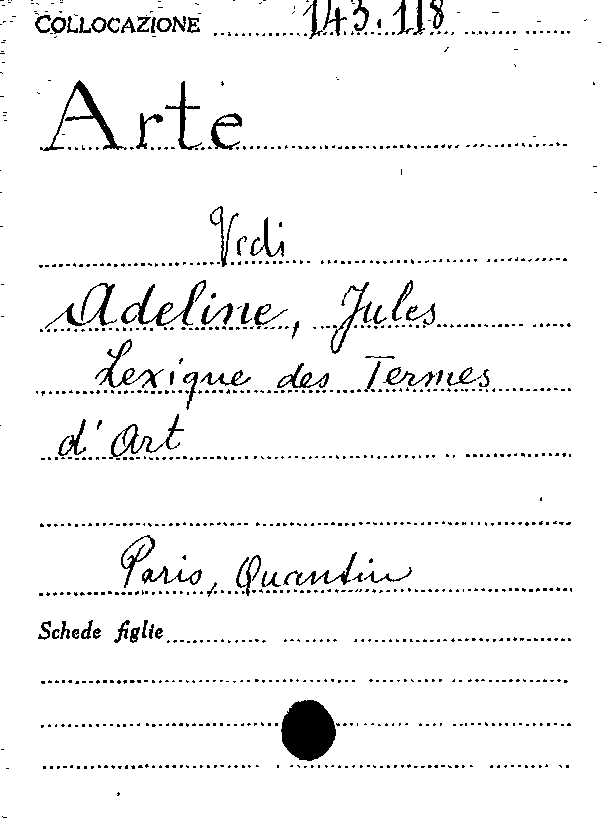 COLLOCAZIONE 143.118
Arte
Vedi
Adeline, Jules
Lexique des Termes
d'Art
Paris, Quantin
Schede figlie